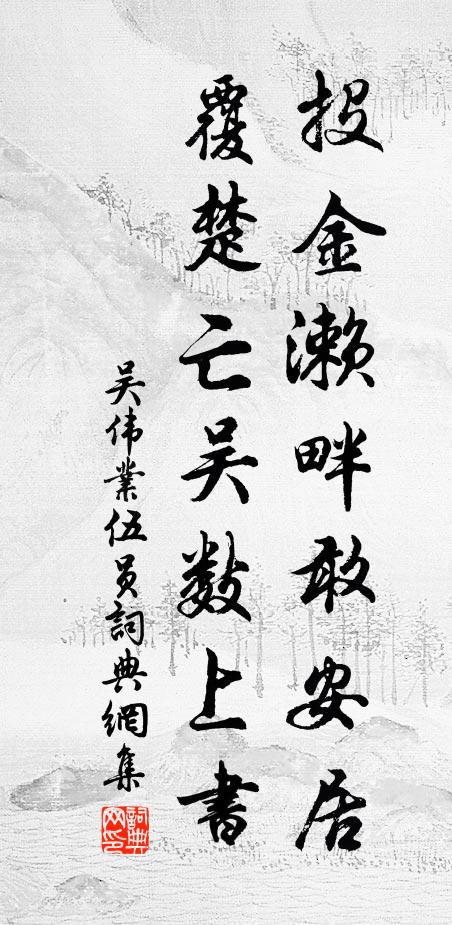 投金濑畔敢安居
覆楚亡吴数上書
吴伟業伍员詞典網集
詞典網印